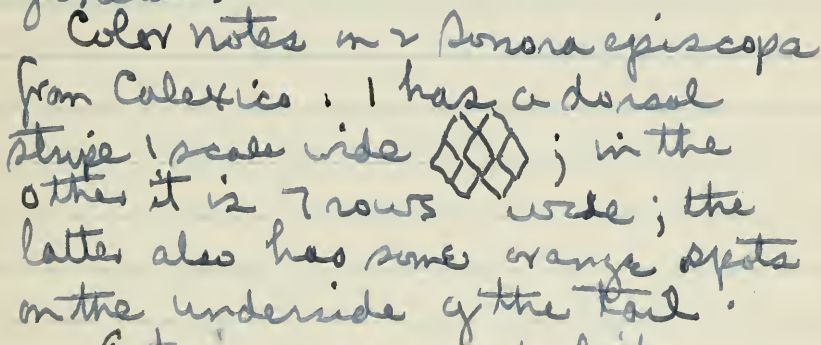 Color notes on 2 Sonora episcopa
from Calexico. 1 has a dorsal
stripe 1 scale wide ; in the
other it is 7 rows wide ; the
latter also has some orange spots
on the underside of the tail.